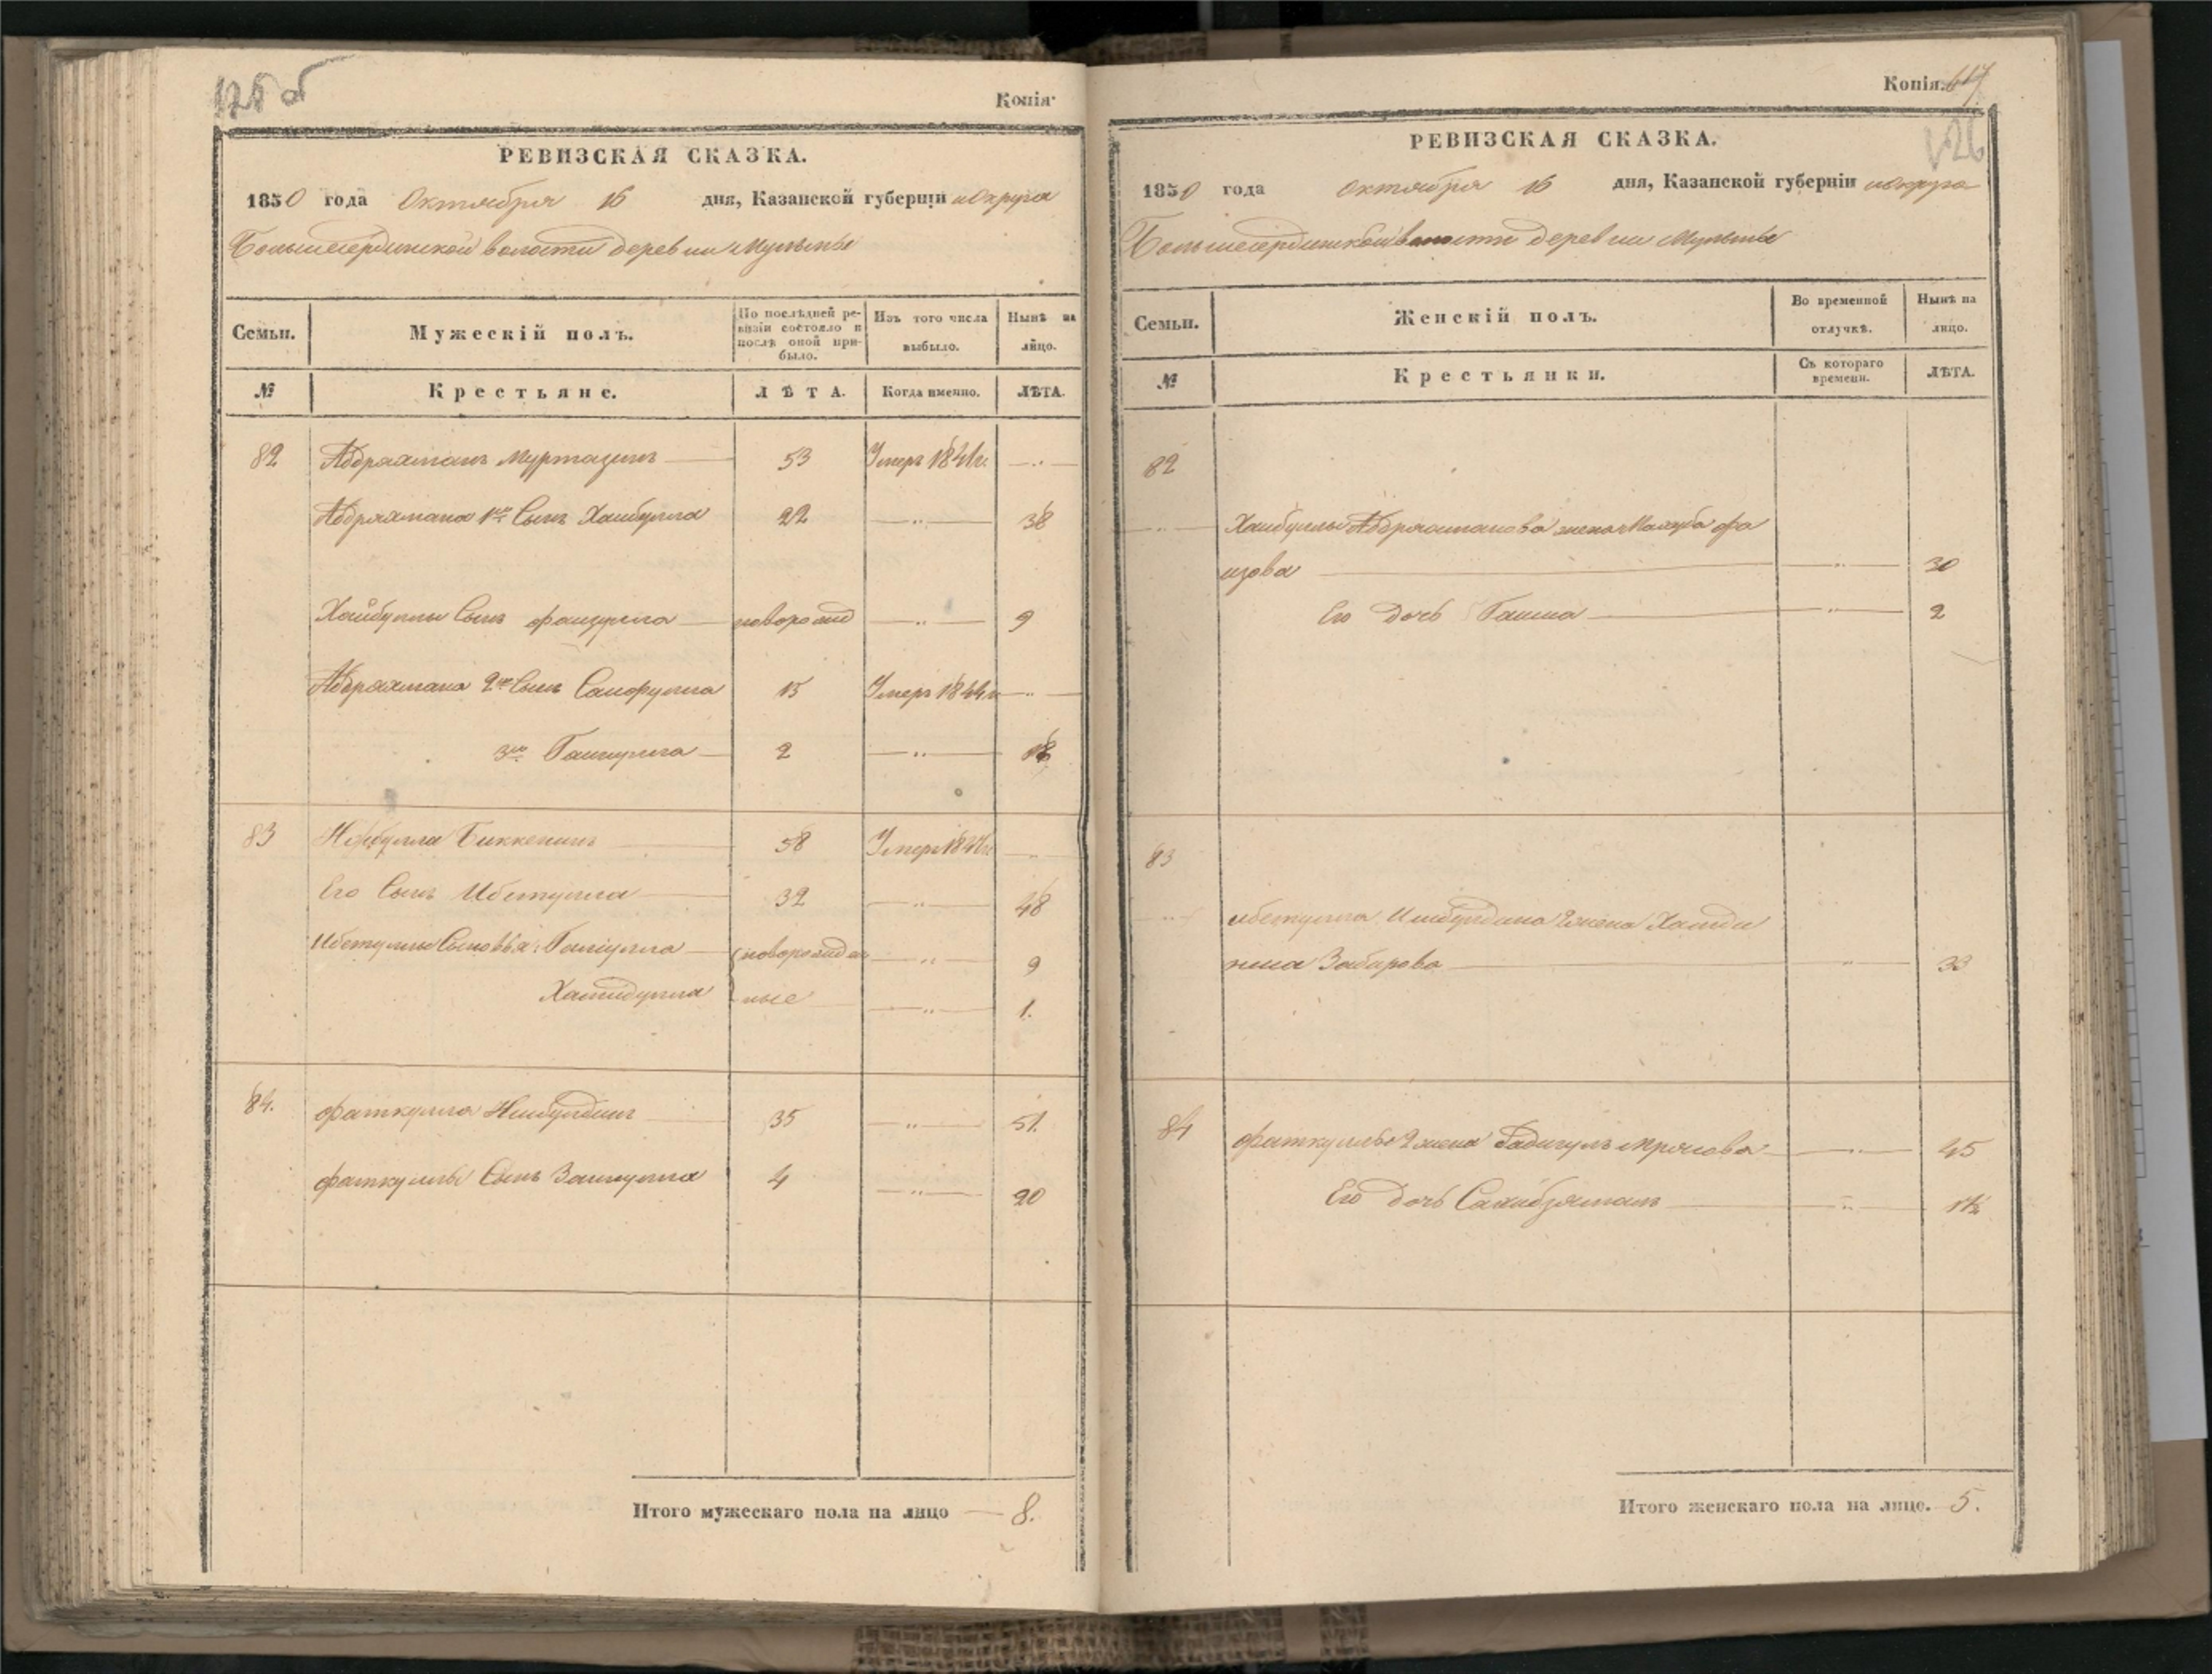 125 об
Копія.
РЕВИЗСКАЯ СКАЗКА.
1850 года Октября 16 дня, Казанской губерніи и округа
Большесердинской волости деревни Мульмы
Семьи. Мужескій полъ. По послѣдней ревизіи состояло и послѣ оной прибыло. Изъ того числа выбыло. Нынѣ на лицо.
№ Крестьяне. ЛѢТА. Когда именно. ЛѢТА.
82 Абдряхманъ Муртазинъ 53 Умеръ 1841 г.
Абдряхмана 1й Сынъ Хайбулла 22 38
Хайбуллы Сынъ Фаизулла новорожд 9
Абдряхмана 2й Сынъ Сайфулла 15 Умеръ 1844 г.
3й 2 18
83 Биккенинъ 58 Умеръ
Его Сынъ Ибетулла 32 48
Ибетуллы Сыновья: новорожден 9
Хамидулла ные 1.
84. Фаткулла Ишбулдинъ 35 51.
Фаткуллы Сынъ 4 20
Итого мужескаго пола на лицо 8.
Копія. 617
126
РЕВИЗСКАЯ СКАЗКА.
1850 года октября 16 дня, Казанской губерніи и округа
Большесердинской волости деревни Мульмы
Семьи. Женскій полъ. Во временной отлучкѣ. Нынѣ на лицо.
№ Крестьянки. Съ котораго времени. ЛѢТА.
82
Хайбуллы Абдряхманова жена Махуба Фа
изова 30
Его дочь 2
83
Ибетулла Ишбулдина жена Хамди
Забирова 33
84 Фаткуллы 2 жена 45
Его дочь Сахибзяманъ
Итого женскаго пола на лицо. 5.